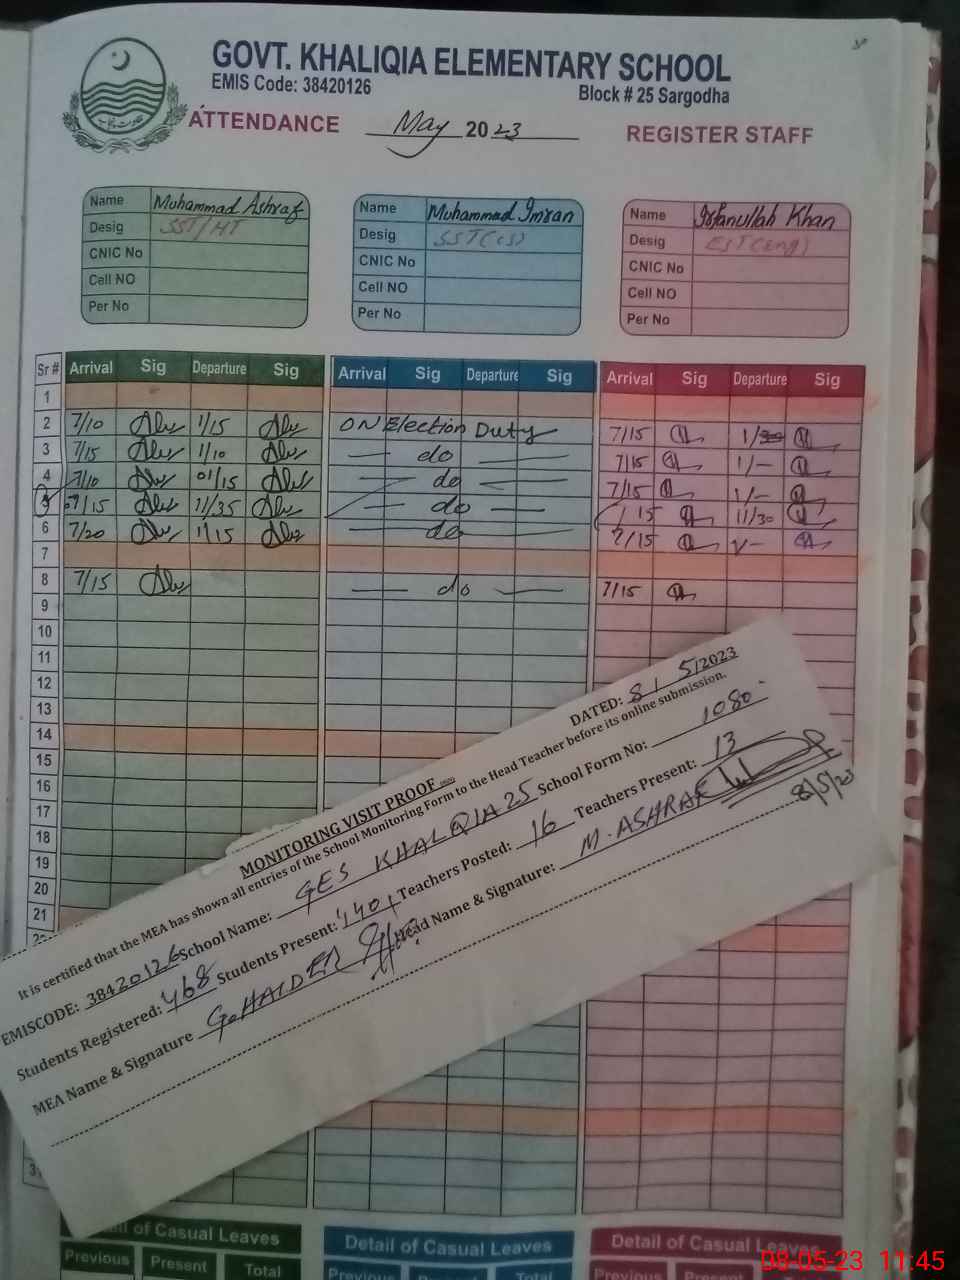 GOVT. KHALIQIA ELEMENTARY SCHOOL
EMIS Code: 38420126
Block # 25 Sargodha
ATTENDANCE May 2023 REGISTER STAFF
Name Muhammad Ashraf
Desig SST/HT
CNIC No
Cell NO
Per No
Name Muhammad Imran
Desig SST(CS)
CNIC No
Cell NO
Per No
Name Irfanullah Khan
Desig EST(Eng)
CNIC No
Cell NO
Per No
Sr # Arrival Sig Departure Sig Arrival Sig Departure Sig Arrival Sig Departure Sig
1
2 7/10 1/15 ON Election Duty 7/15 1/
3 7/15 1/10 — do — 7/15 1/—
4 7/10 01/15 — do — 7/15 1/—
5 7/15 11/35 — do — 7/15 11/30
6 7/20 1/15 — do — 7/15 1/—
7
8 7/15 — do — 7/15
9
10
11
12
13
14
15
16
17
18
19
20
21
DATED: 8/5/2023
MONITORING VISIT PROOF
It is certified that the MEA has shown all entries of the School Monitoring Form to the Head Teacher before its online submission.
EMISCODE: 38420126 School Name: GES KHALQIA 25 School Form No: 1080
Students Registered: 468 Students Present: 401 Teachers Posted: 16 Teachers Present: 13
MEA Name & Signature G. HAIDER Head Name & Signature: M. ASHRAF
8/5/23
Detail of Casual Leaves
Previous Present Total
Detail of Casual Leaves
Previous Present Total
Detail of Casual Leaves
Previous Present Total
08-05-23 11:45